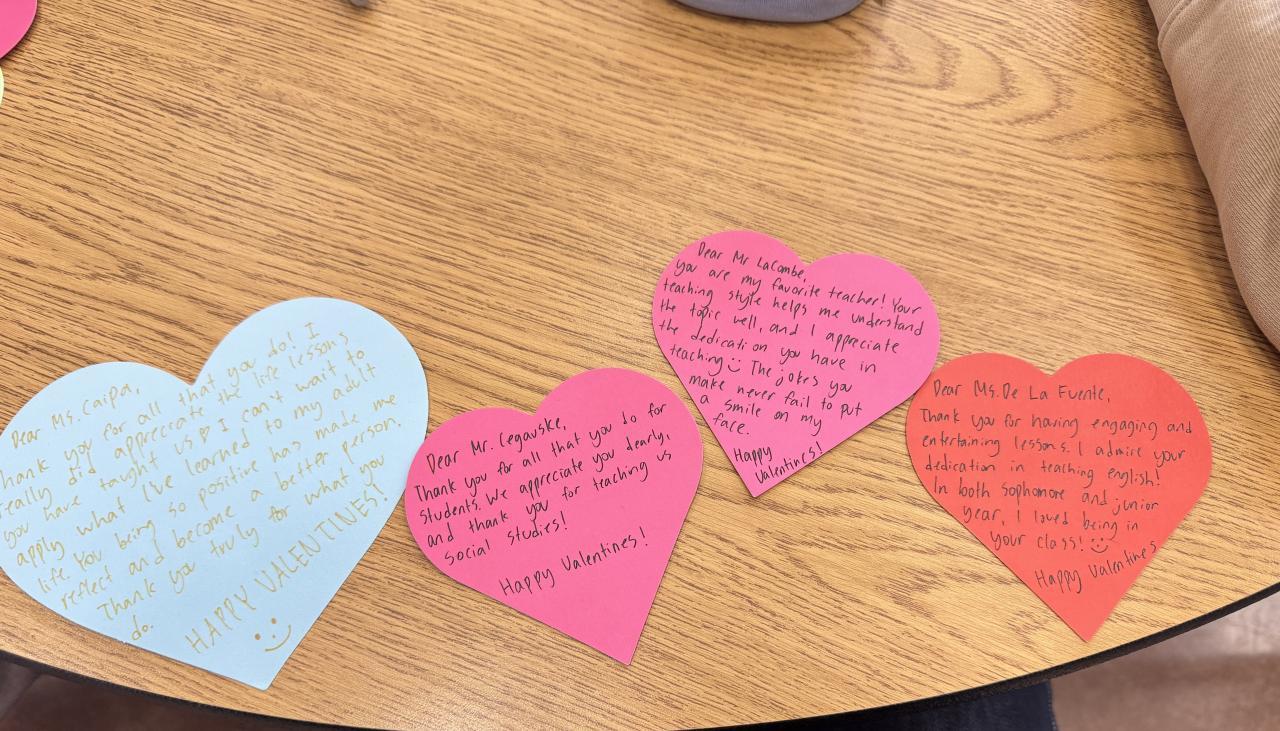 Dear Ms. Caipa,
Thank you for all that you do! I
really did appreciate the life lessons
you have taught us ♡ I can't wait to
apply what I've learned to my adult
life. You being so positive has made me
reflect and become a better person.
Thank you truly for what you
do.
HAPPY VALENTINES!
Dear Mr. Cegavske,
Thank you for all that you do for
students. We appreciate you dearly,
and thank you for teaching us
social studies!
Happy Valentines!
Dear Mr LaCombe,
you are my favorite teacher! Your
teaching style helps me understand
the topic well, and I appreciate
the dedication you have in
teaching :) The jokes you
make never fail to put
a smile on my
face.
Happy
Valentines!
Dear Ms. De La Fuente,
Thank you for having engaging and
entertaining lessons. I admire your
dedication in teaching english!
In both sophomore and junior
year, I loved being in
your class! :)
Happy Valentines